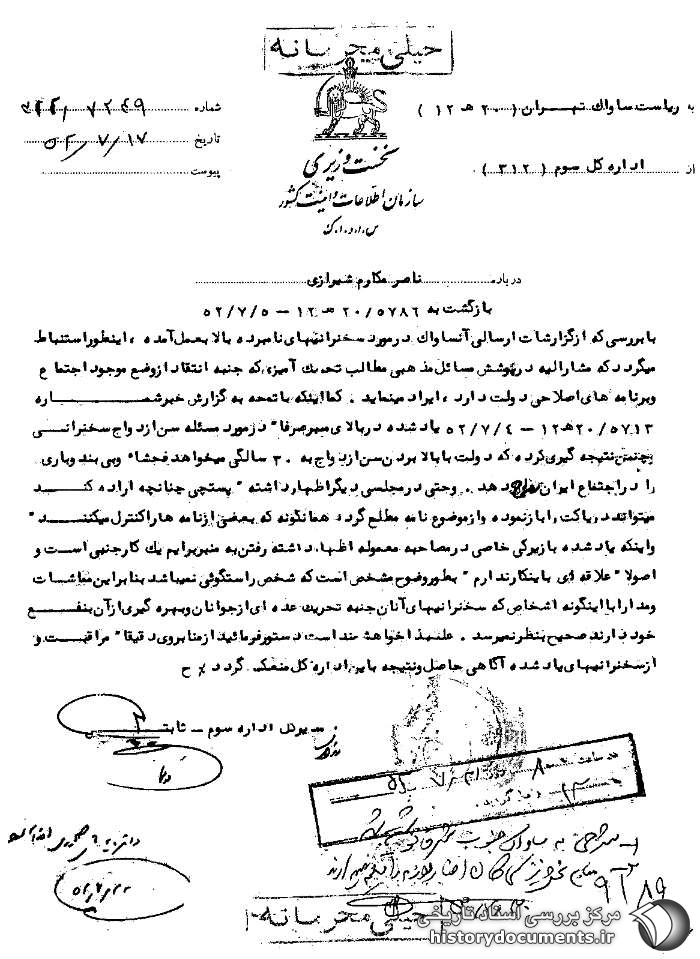 خیلی محرمانه
به ریاست ساواک تهران ( ۲۰ هـ ۱۲ )
شماره ۷۲۴۹
از اداره کل سوم ( ۳۱۲ )
تاریخ ۵۲/۷/۱۷
پیوست
نخست وزیری
سازمان اطلاعات و امنیت کشور
س.ا.و.ا.ک
درباره ناصر مکارم شیرازی
بازگشت به ۲۰/۵۷۸۶ هـ ۱۲ - ۵۲/۷/۵
با بررسی که از گزارشات ارسالی آنساواک در مورد سخنرانیهای نامبرده بالا بعمل آمده ، اینطور استنباط
میگردد که مشارالیه در پوشش مسائل مذهبی مطالب تحریک آمیزی که جنبه انتقاد از وضع موجود اجتماع
و برنامه های اصلاحی دولت دارد ، ایراد مینماید . کما اینکه باتوجه به گزارش خبر شماره
۲۰/۵۷۱۳ هـ ۱۲ - ۵۲/۷/۴ یاد شده در بالای منبر صرفا" در مورد مسئله سن ازدواج سخنرانی
و چنین نتیجه گیری کرده که دولت با بالا بردن سن ازدواج به ۳۰ سالگی میخواهد فحشاء و بی بند و باری
را در اجتماع ایران رواج دهد . وحتی در مجلسی دیگر اظهار داشته " پستچی چنانچه اراده کند
میتواند در پاکت را باز نموده و از موضوع نامه مطلع گردد همانگونه که بعضی از نامه ها را کنترل میکنند "
و اینکه یاد شده با زیرکی خاصی در مصاحبه معموله اظهار داشته رفتن به منبر برایم یک کار جنبی است و
اصولا " علاقه ای باینکار ندارم " بطور وضوح مشخص است که شخص راستگوئی نمیباشد بنابراین مماشات
و مدارا با اینگونه اشخاص که سخنرانیهای آنان جنبه تحریک عده ای از جوانان و بهره گیری از آن بنفع
خود دارند صحیح بنظر نمیرسد . علیهذا خواهشمند است دستور فرمائید از منابر وی دقیقا" مراقبت و
از سخنرانیهای یاد شده آگاهی حاصل و نتیجه باین اداره کل منعکس گردد ٪ ح
مدیر کل اداره سوم - ثابتی
در ساعت ۸ روز
خیلی محرمانه
مرکز بررسی اسناد تاریخی
historydocuments.ir